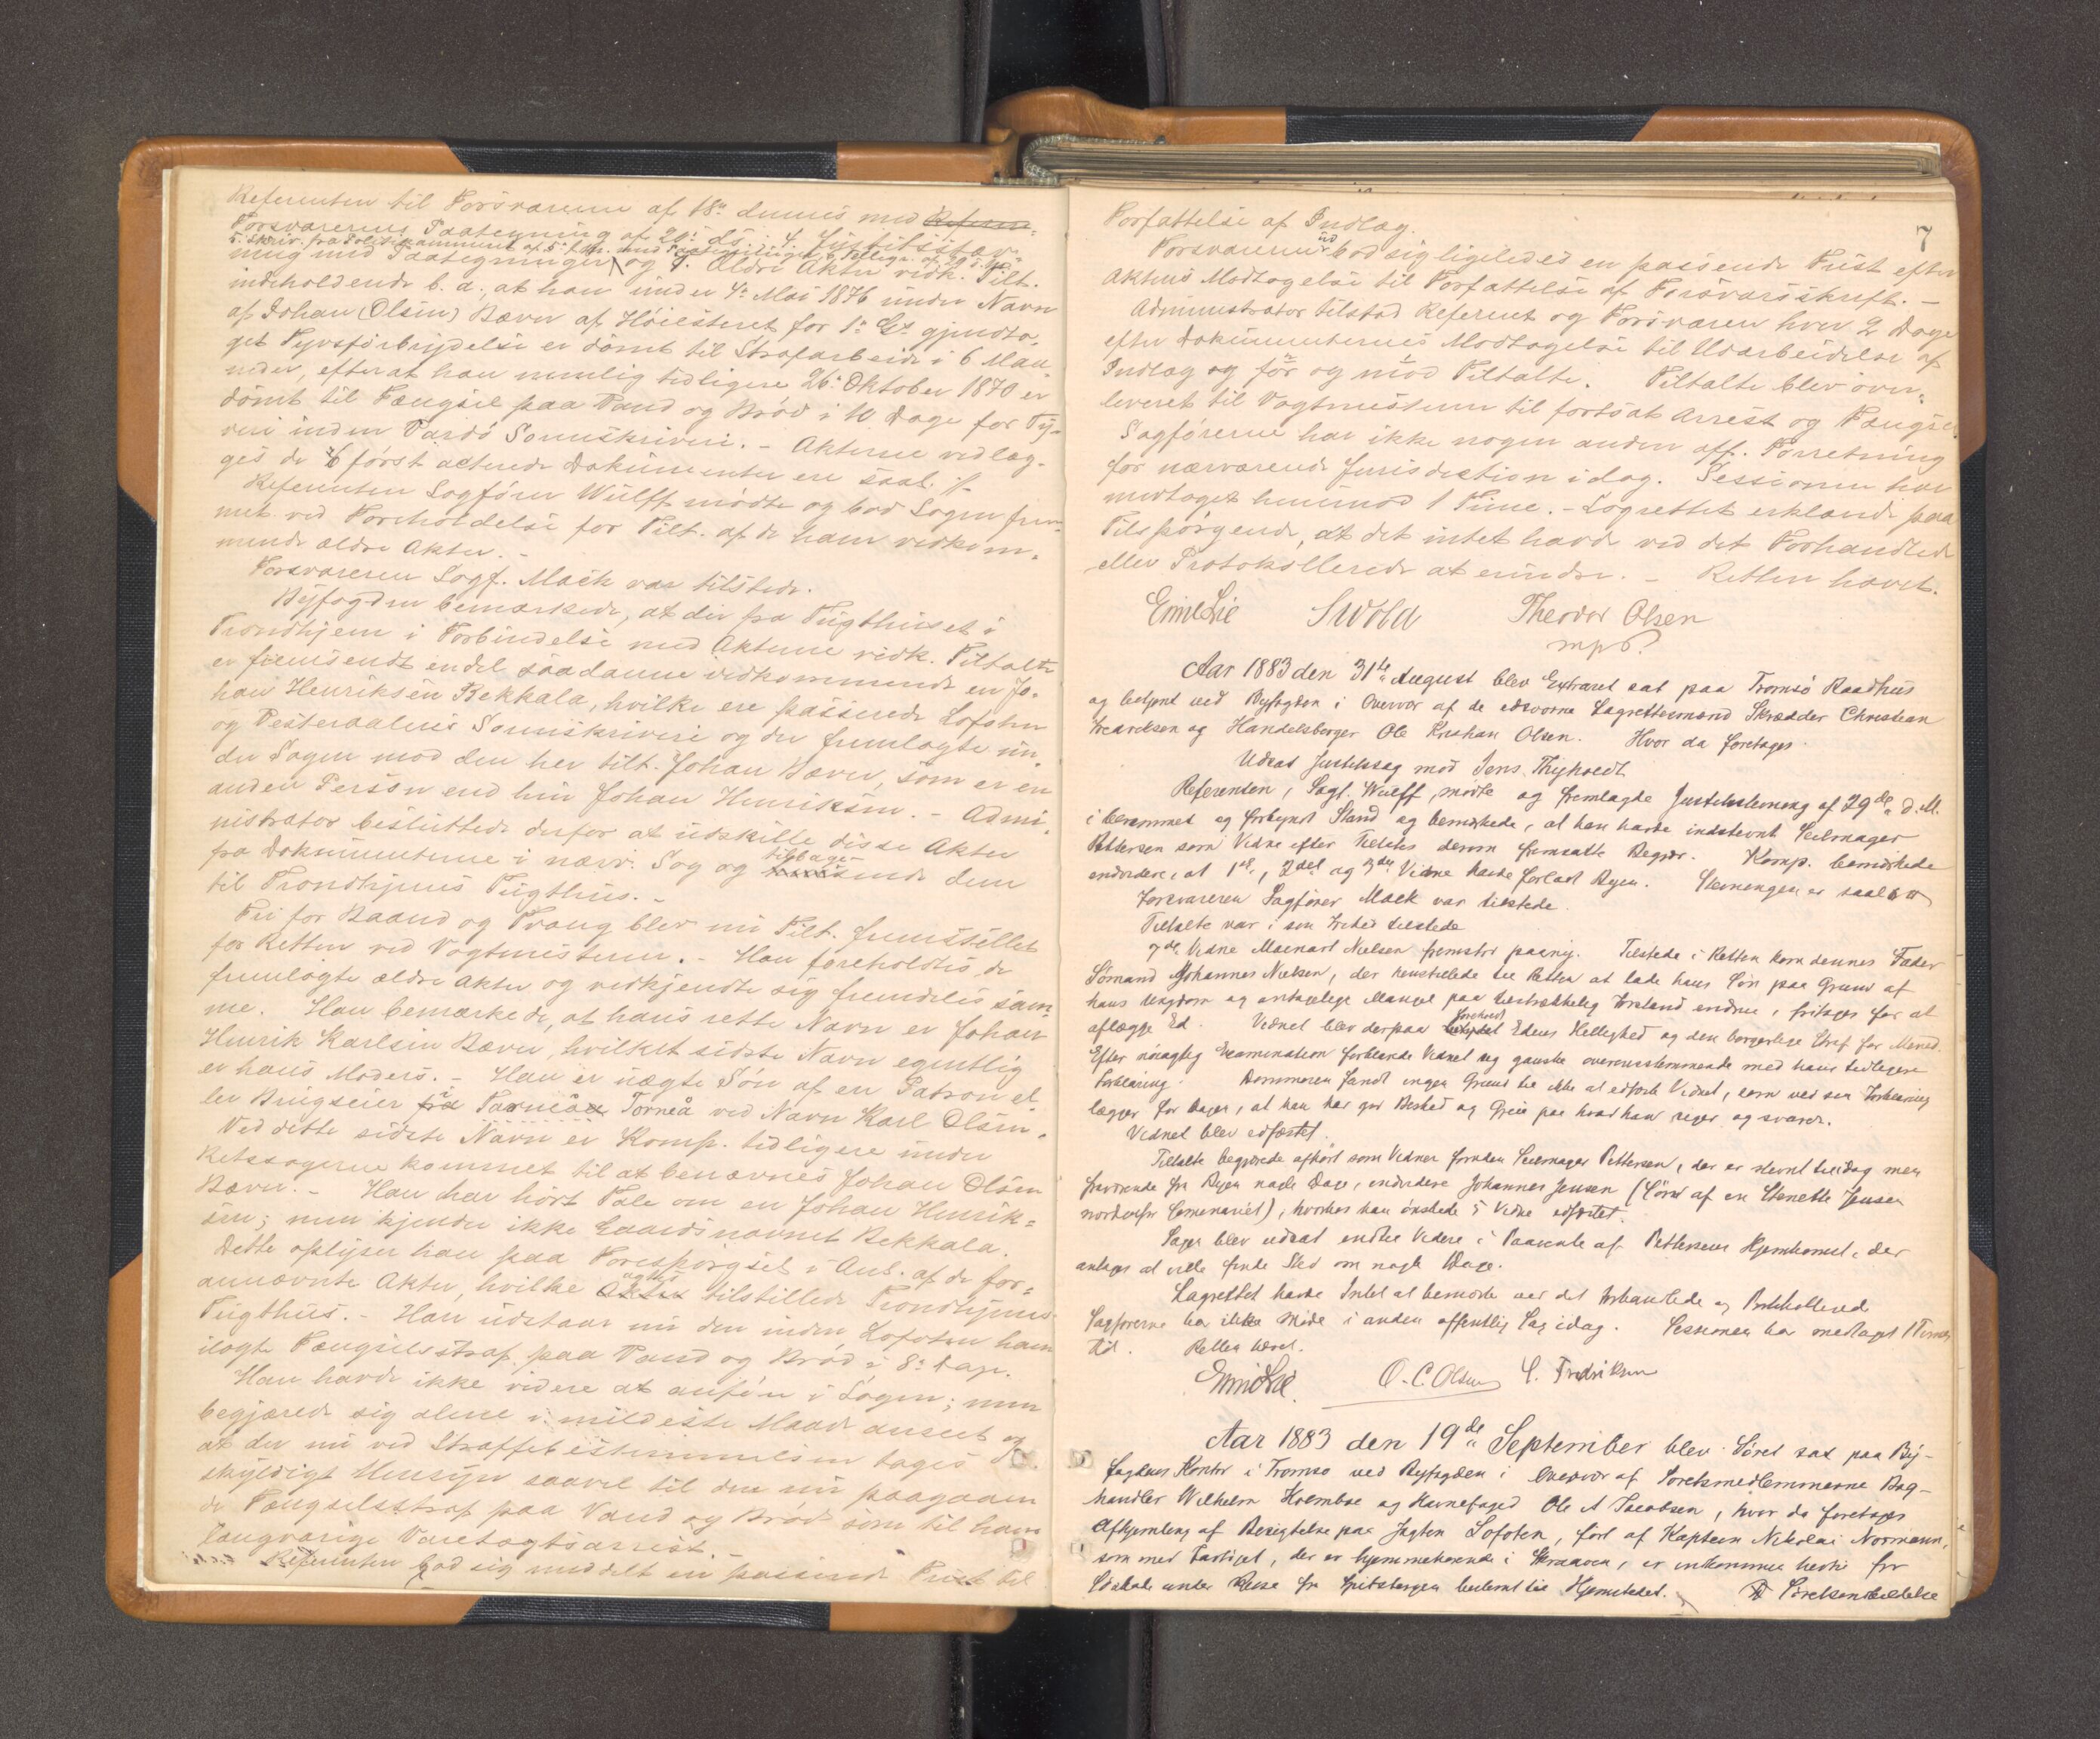 Referenten til Forsvareren af 18de dennes med Referen-
Forsvarerens Paategning af 20de ds. 4. Justitsstev-
5. Skriv. fra Politikammeret af 5te
ning med Paategninger og 9. Ældre Akter vedk. Tilt.
indeholdende b. a., at han under 4de Mai 1876 under Navn
af Johan (Olsen) Bæver af Höiesteret for 1ste Gg gjendta-
get Tyvsforbrydelse er dömt til Strafarbeide i 6 Maa-
neder, efterat han nemlig tidligere 26de Oktober 1870 er
dömt til Fængsel paa Vand og Bröd i 10 Dage for Ty-
veri inden Vardö Sorenskriveri. - Akterne vedlæg-
ges de 6 först acterede Dokumenter ere saal. ./.
Referenten Sagförer Wulff mödte og bad Sagen frem-
met ved Foreholdelse for Tilt. af de ham vedkom-
mende ældre Akter. -
Forsvareren Sagf. Mack var tilstede.
Byfogden bemærkede, at der fra Tugthuset i
Trondhjem i Forbindelse med Akterne vedk. Tiltalte
er fremsendt endel saadanne vedkommende en Jo-
han Henriksen Bekkala, hvilke ere passerede Lofoten
og Vesteraalens Sorenskriveri og der fremlagte un-
der Sagen mod den her tilt. Johan Bæver, som er en
anden Person end hin Johan Henriksen. - Admi-
nistrator besluttede derfor at udskille disse Akter
fra Dokumenterne i nærv. Sag og tilbage-
sende dem
til Trondhjems Tugthus. -
Fri for Baand og Tvang blev nu Tilt. fremstillet
for Retten ved Vagtmesteren. - Han foreholdtes de
fremlagte ældre Akter og vedkjendte sig fremdeles sam-
me. Han bemærkede, at hans rette Navn er Johan
Henrik Karlsen Bæver, hvilket sidste Navn egentlig
er hans Moders. - Han er uægte Sön af en Patron el-
ler Brugseier fra Torneå ved Navn Karl Olsen.
Ved dette sidste Navn er Komp. tidligere under
Retssagerne kommet til at benævnes Johan Olsen
Bæver. - Han har hört Tale om en Johan Henrik-
sen; men kjender ikke Gaardsnavnet Bekkala.
Dette oplyser han paa Forespörgsel i Anl. af de for-
annævnte Akter, hvilke agtes tilstillede Trondhjems
Tugthus. - Han udstaar nu den inden Lofoten ham
ilagte Fængselsstraf paa Vand og Bröd i 8te Dage.
Han havde ikke videre at anföre i Sagen; men
begjærede sig alene i mildeste Maade anseet og
at der nu ved Straffebestemmelsen tages
skyldigt Hensyn saavel til den nu paagaaen-
de Fængselsstraf paa Vand og Bröd som til hans
langvarige Varetægtsarrest. -
Referenten bad sig meddelt en passende Frist til
7
Forfattelse af Indlæg.
Forsvareren udbad sig ligeledes en passende Frist efter
Aktens Modtagelse til Forfattelse af Forsvarsskrift. -
Administrator tilstod Referent og Forsvarer hver 2 Dage
efter Dokumenternes Modtagelse til Udarbeidelse af
Indlæg og for og mod Tiltalte. Tiltalte blev over-
leveret til Vagtmesteren til fortsat Arrest og Fængsel.
Sagförerne har ikke nogen anden off. Forretning
for nærværende Jurisdiction idag. Sessionen har
medtaget henimod 1 Time. - Lagrettet erklærede paa
Tilspörgende, at det intet havde ved det Forhandlede
eller Protokollerede at erindre. - Retten hævet.
Emil Lie Svold Theodor Olsen
mpP.
Aar 1883 den 31te August blev Extraret sat paa Tromsö Raadhus
og betjent ved Byfogden i Overvær af de edsvorne Lagrettesmænd Skrædder Christian
Fredriksen og Handelsborger Ole Kristian Olsen. Hvor da foretages
Udsat Justitssag mod Jens Thyholdt
Referenten, Sagf. Wulff, mödte og fremlagde Justitsstevning af 29de d. M.
i berammet og forkyndt Stand og bemærkede, at han havde indstevnt Seilmager
Pettersen som Vidne efter Tiltaltes derom fremsatte Begjær. Komp. bemærkede
endvidere, at 1ste, 2det og 3die Vidne havde forladt Byen. Stevningen er saal.
Forsvareren Sagförer Mack var tilstede.
Tiltalte var i sin Frihed tilstede
7de Vidne Meinart Nielsen fremstod paany. Tilstede i Retten kom dennes Fader
Sömand Johannes Nielsen, der henstillede til Retten at lade hans Sön paa Grund af
hans Ungdom og antagelige Mangel paa tilstrækkelig Forstand endnu, fritages for at
aflægge Ed. Vidnet blev derpaa foreholdt Edens Hellighed og den borgerlige Straf for Mened.
Efter nöiagtig Examination forklarede Vidnet sig ganske overensstemmende med hans tidligere
Forklaring. Dommeren fandt ingen Grund til ikke at edfæste Vidnet, som ved sin Forklaring
lægger for Dagen, at han har god Besked og Greie paa hvad han siger og svarer.
Vidnet blev edfæstet.
Tiltalte begjærede afhört som Vidner foruden Seilmager Pettersen, der er stevnt til idag men
fraværende fra Byen nogle Dage, endvidere Johannes Jensen (Sön af en Stenette Jensen
nordenfor Seminariet), hvorhos han önskede 5 Vidne edfæstet.
Sagen blev udsat indtil Videre i Paavente af Pettersens Hjemkomst, der
antages at ville finde Sted om nogle Dage.
Lagrettet havde Intet at bemærke ved det Forhandlede og Protokollerede
Sagförerne har ikke Möde i anden offentlig Sag idag. Sessionen har medtaget 1 Times
Tid. Retten hævet.
Emil Lie. O. C. Olsen C. Fredriksen
Aar 1883 den 19de September blev Söret sat paa By-
fogdens Kontor i Tromsö ved Byfogden i Overvær af Söretsmedlemmerne Bog-
handler Wilhelm Holmboe og Havnefoged Ole A Jacobsen, hvor da foretages
Afhjemling af Besigtelse paa Jagten Lofoten, fört af Kaptein Nikolai Normann,
som med Fartöiet, der er hjemmehörende i , er indkommen hertil for
Söskade under Reise fra Spitsbergen bestemt til Hjemstedet. Söretsanmeldelse